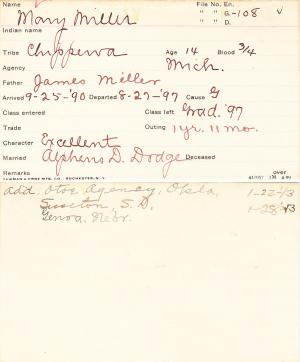 Name File No. En.
Mary Miller " " G.-108 v
Indian name " " D.
Tribe Chippewa Age 14 Blood 3/4
Agency Mich.
Father James Miller
Arrived 9-25-'90 Departed 8-27-'97 Cause G
Class entered Class left Grad. '97
Trade Outing 1 yr. 11 mo.
Character Excellent
Married Alpheus D. Dodge Deceased
Remarks over
add. Otoe Agency, Okla, 1-22-13
Sisseton, S.D. 1-28-13
Genoa, Nebr.